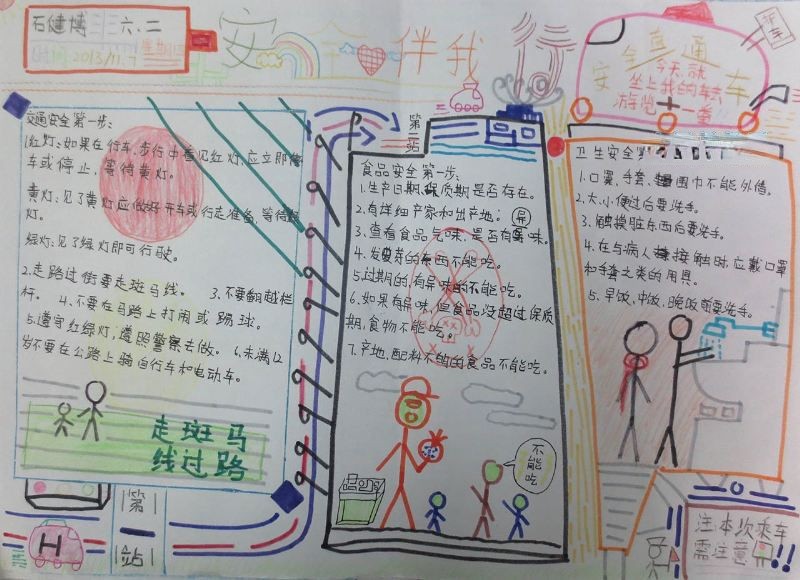 石健博 六、二
时间 2013/11.7 星期
安全伴我行
安全直通车
今天就
坐上我的车去
游览一番
交通安全第一步:
1.红灯:如果在行车、步行中看见红灯,应立即停
车或停止,等待黄灯。
黄灯:见了黄灯应做好开车或行走准备,等待绿
灯。
绿灯:见了绿灯即可行驶。
2.走路过街要走斑马线。 3.不要翻越栏
杆。 4.不要在马路上打闹或踢球。
5.遵守红绿灯,遵照警察去做。 6.未满12
岁不要在公路上骑自行车和电动车。
走斑马
线过路
第一站
第二站
食品安全第一步:
1.生产日期,保质期是否存在。
2.有详细产家和出产地。
3.查看食品气味,是否有异味。
4.发芽的东西不能吃。
5.过期的,有异味的不能吃。
6.如果有异味,但食品没超过保质
期,食物不能吃。
7.产地、配料不明的食品不能吃。
不能吃
卫生安全第
1.口罩、手套、围巾不能外借。
2.大、小便过后要洗手。
3.触摸脏东西后要洗手。
4.在与病人接触时应戴口罩
和手套之类的用具。
5.早饭、中饭、晚饭前要洗手。
H
注:本次乘车
需注意!!